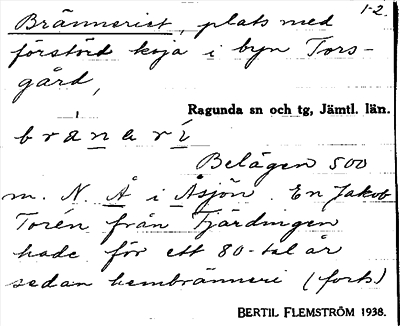 1-2.
Bränneriet, plats med
förstörd koja i byn Tors-
gård,
Ragunda sn och tg, Jämtl. län.
bränarí
Belägen 500
m. N. Å i Åsjön. En Jakob
Torén från Fjärdingen
hade för ett 80-tal år
sedan hembränneri (forts.)
BERTIL FLEMSTRÖM 1938.